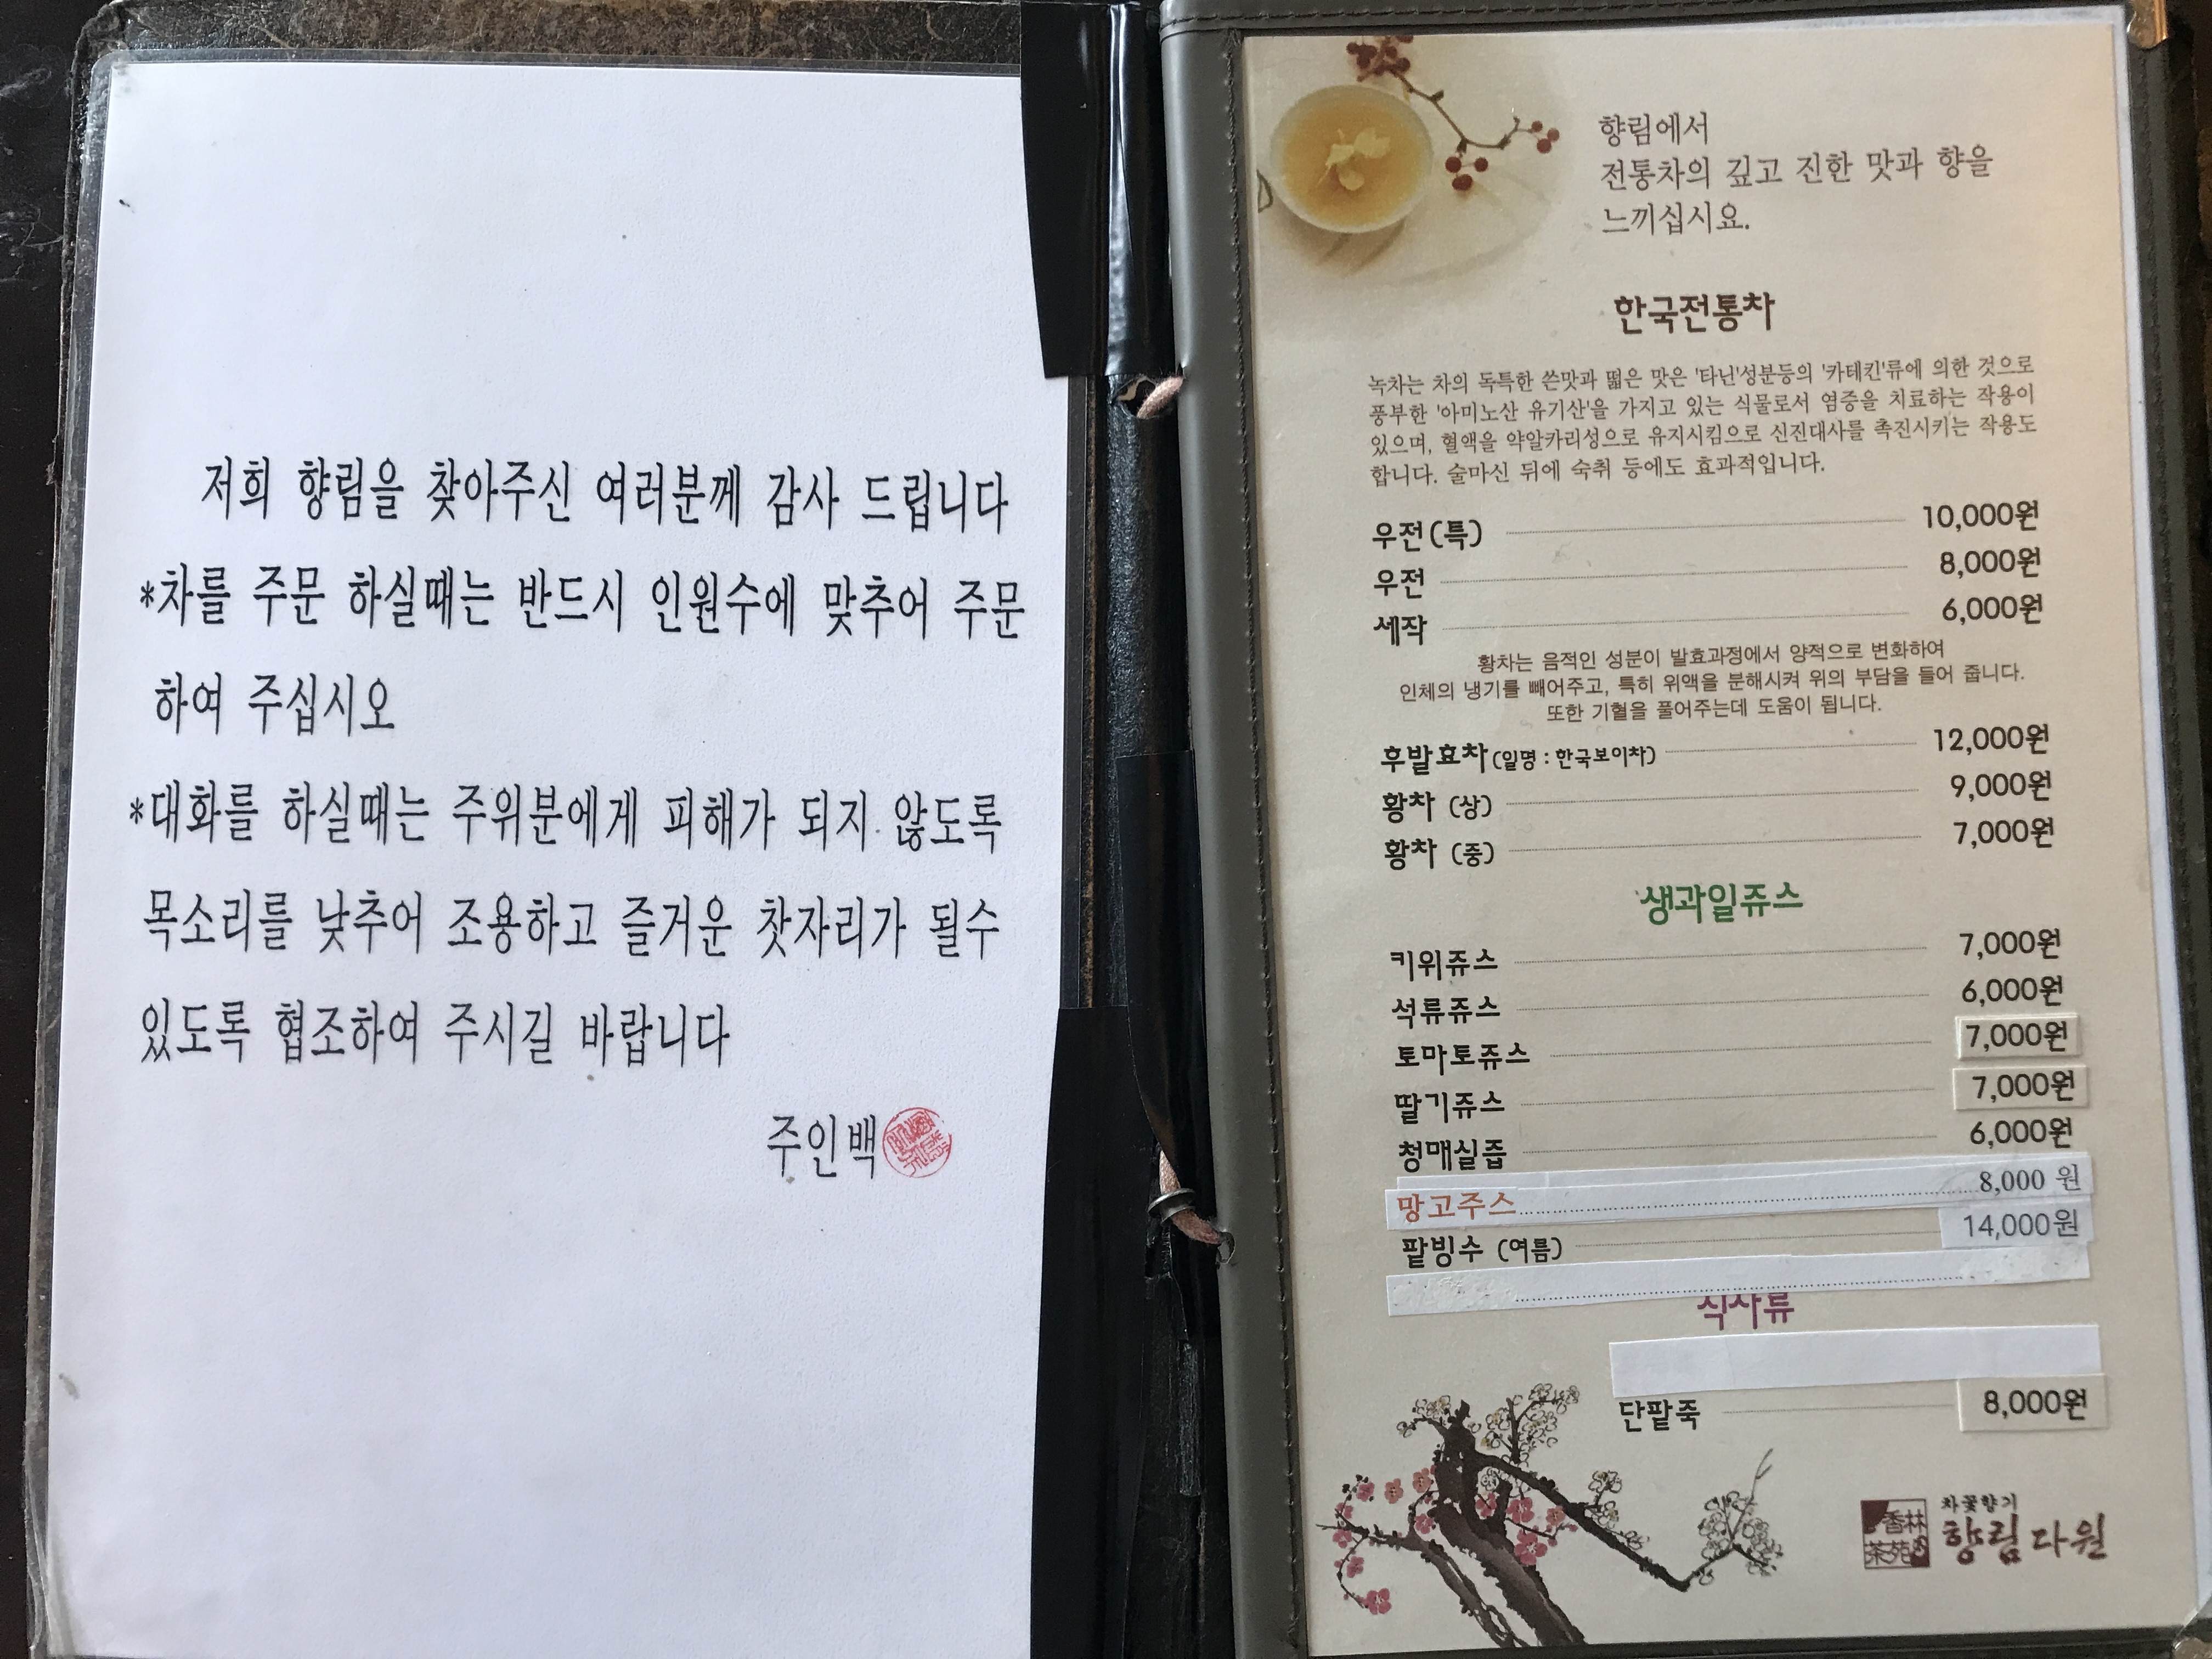 저희 향림을 찾아주신 여러분께 감사 드립니다
*차를 주문 하실때는 반드시 인원수에 맞추어 주문
하여 주십시오
*대화를 하실때는 주위분에게 피해가 되지 않도록
목소리를 낮추어 조용하고 즐거운 찻자리가 될수
있도록 협조하여 주시길 바랍니다
주인백
향림에서
전통차의 깊고 진한 맛과 향을
느끼십시요.
한국전통차
녹차는 차의 독특한 쓴맛과 떫은 맛은 '타닌'성분등의 '카테킨'류에 의한 것으로
풍부한 '아미노산 유기산'을 가지고 있는 식물로서 염증을 치료하는 작용이
있으며, 혈액을 약알카리성으로 유지시킴으로 신진대사를 촉진시키는 작용도
합니다. 술마신 뒤에 숙취 등에도 효과적입니다.
우전(특) 10,000원
우전 8,000원
세작 6,000원
황차는 음적인 성분이 발효과정에서 양적으로 변화하여
인체의 냉기를 빼어주고, 특히 위액을 분해시켜 위의 부담을 들어 줍니다.
또한 기혈을 풀어주는데 도움이 됩니다.
후발효차(일명 : 한국보이차) 12,000원
황차 (상) 9,000원
황차 (중) 7,000원
생과일쥬스
키위쥬스 7,000원
석류쥬스 6,000원
토마토쥬스 7,000원
딸기쥬스 7,000원
청매실즙 6,000원
망고주스 8,000 원
팥빙수 (여름) 14,000원
식사류
단팥죽 8,000원
차꽃향기
香林
茶苑
향림다원